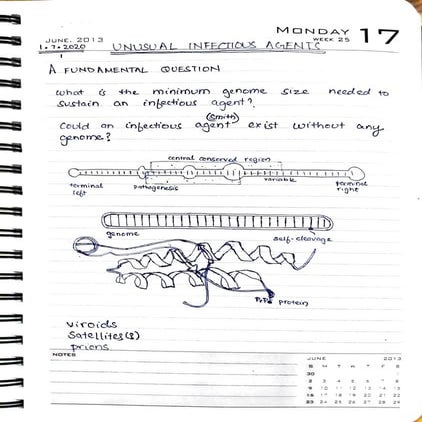 MONDAY 17
JUNE, 2013
WEEK 25
1.7.2020
UNUSUAL INFECTIOUS AGENTS
A FUNDAMENTAL QUESTION
What is the minimum genome size needed to
sustain an infectious agent?
(Smith)
Could an infectious agent exist without any
genome?
central conserved region
terminal left
pathogenesis
variable
terminal right
genome
self-cleavage
PrP protein
viroids
Satellites(?)
prions
NOTES
JUNE 2013
S M T W T F S
30 1
2 3 4 5 6 7 8
9 10 11 12 13 14 15
16 17 18 19 20 21 22
23 24 25 26 27 28 29